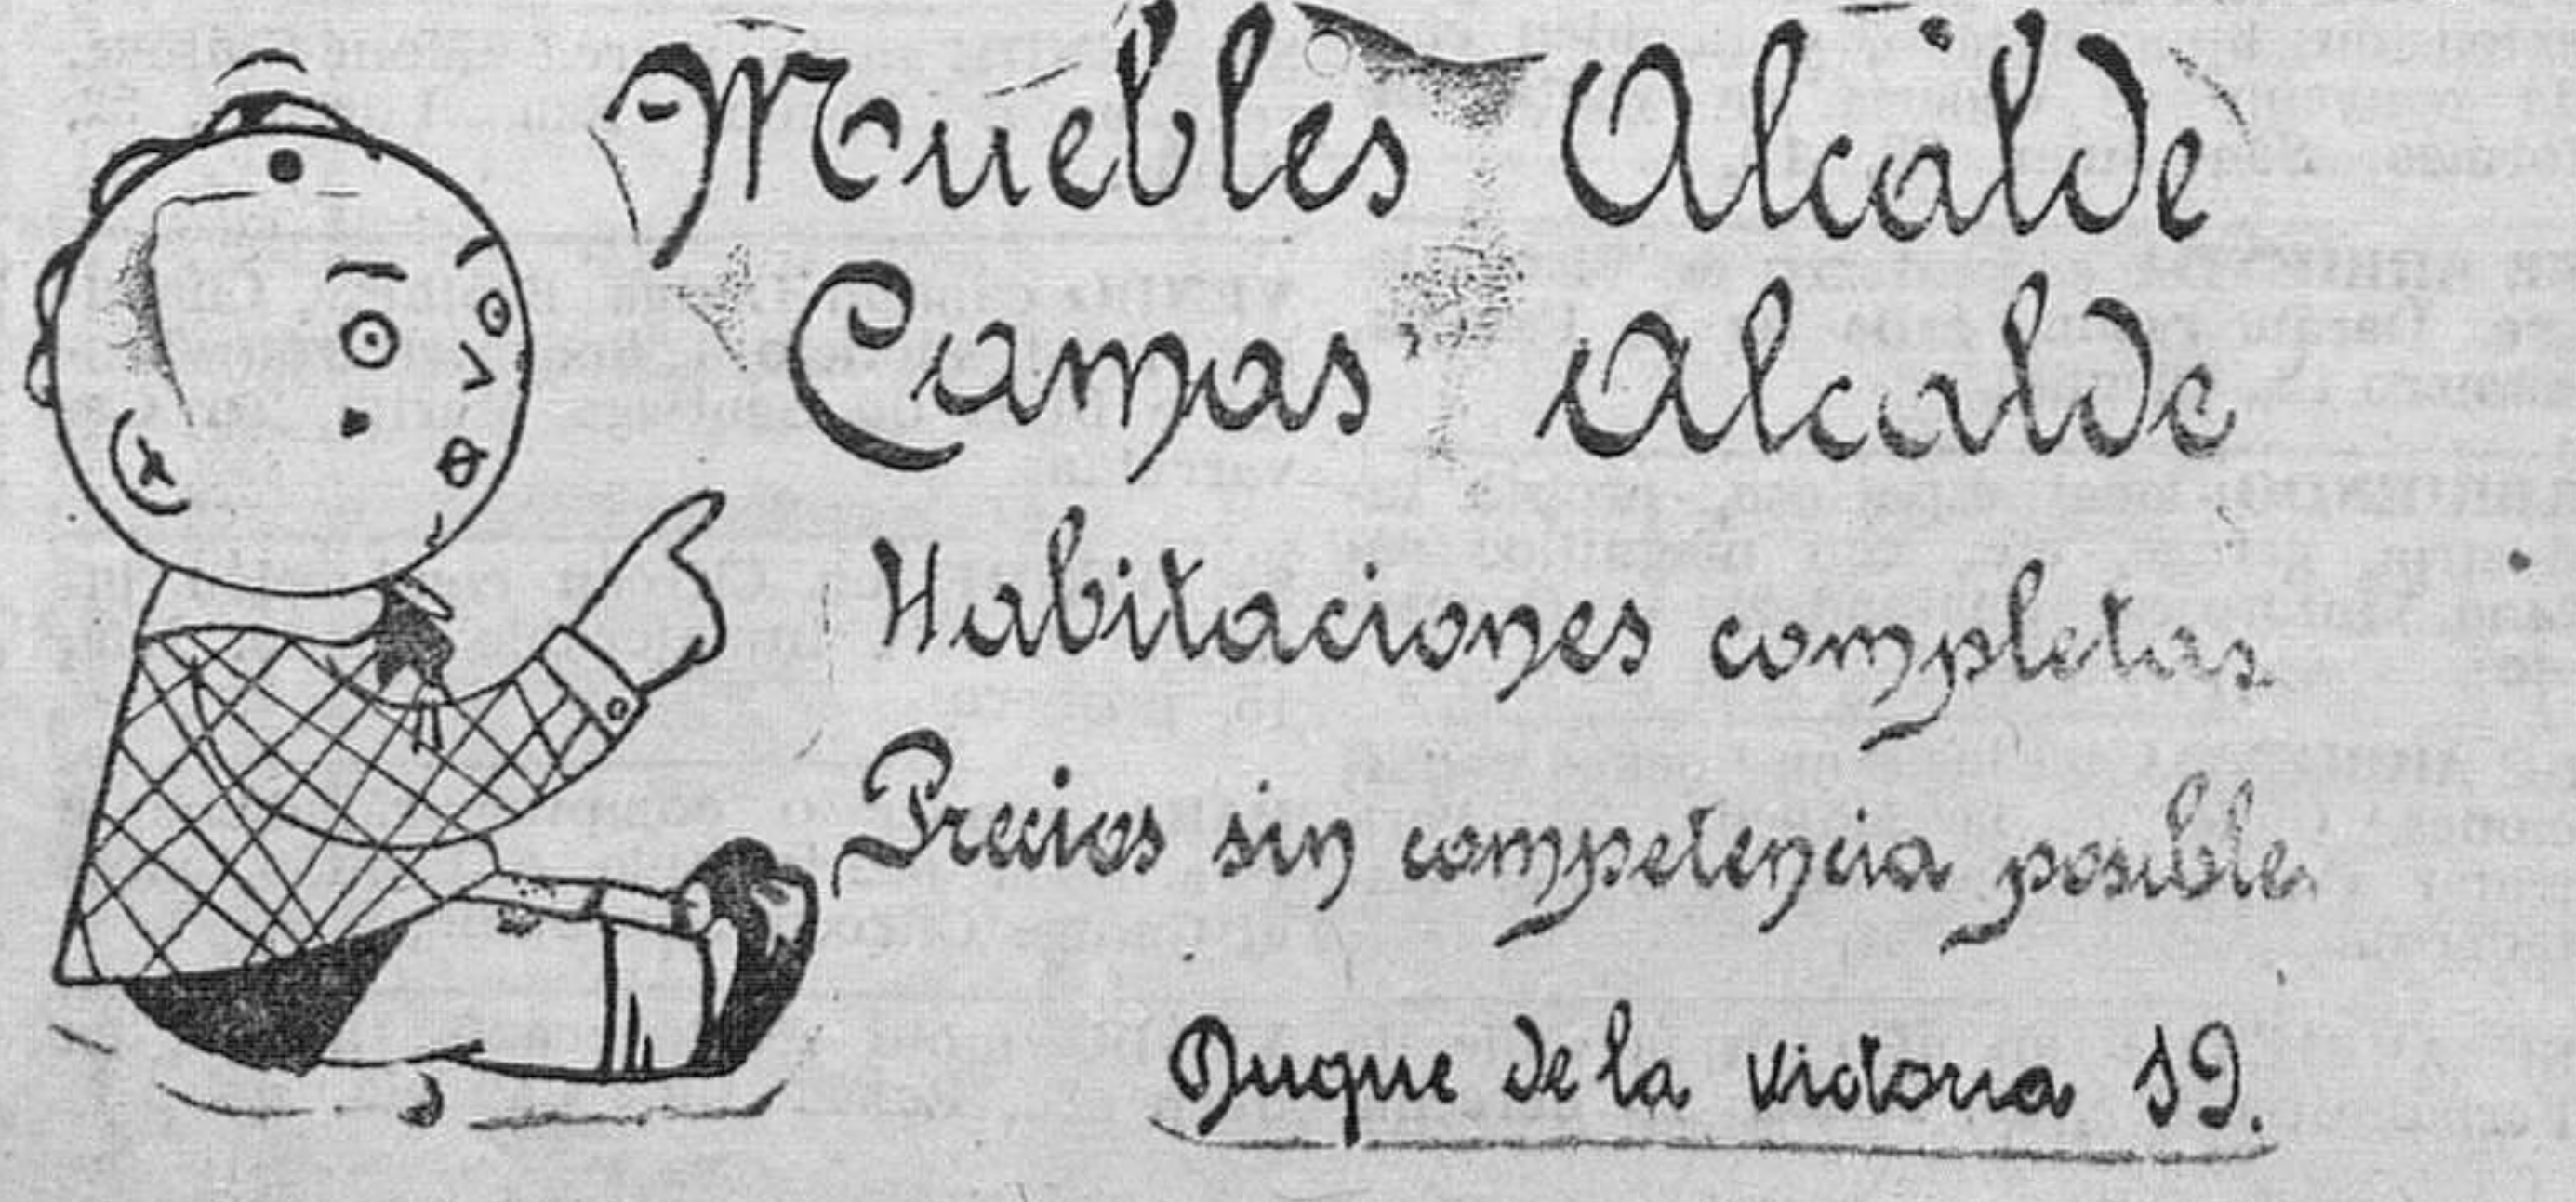 Muebles Alcalde
Camas Alcalde
Habitaciones completas
Precios sin competencia posible
Duque de la Victoria 19.